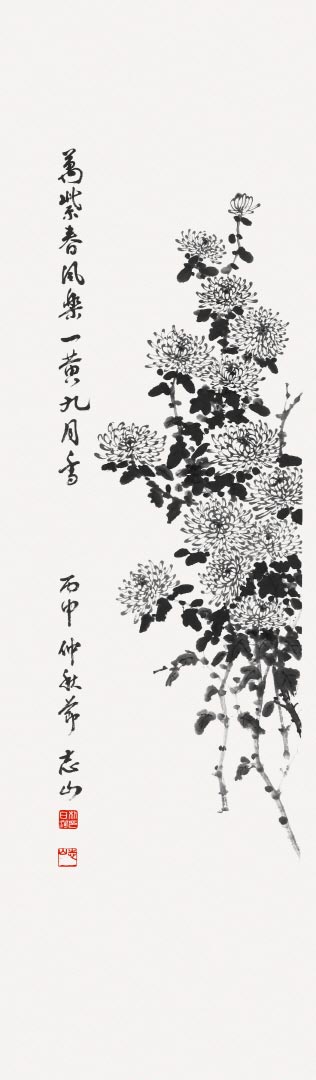 萬紫春风樂一黄九月香
丙申仲秋节 志山